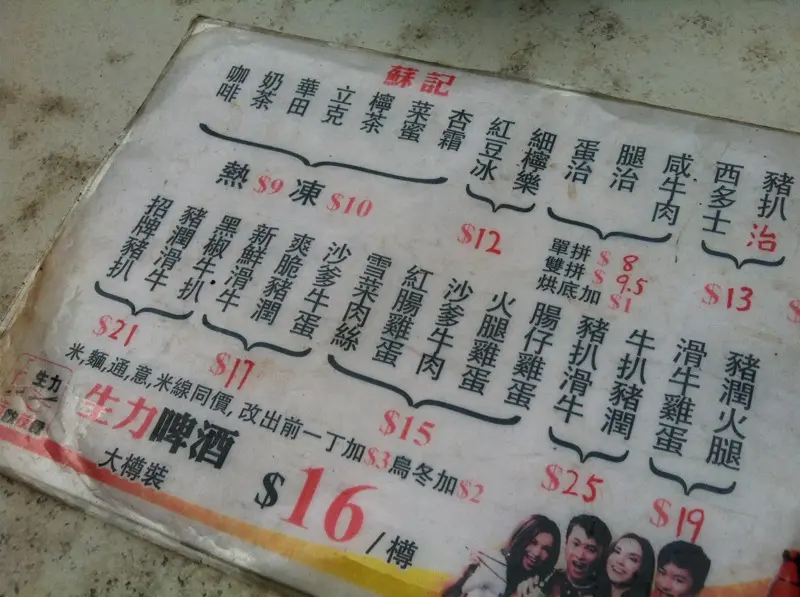 蘇記
咖啡
奶茶
華田
立克
檸茶
菜蜜
杏霜
熱 $9 凍 $10
紅豆冰
細檸樂
$12
蛋治
腿治
咸牛肉
單拼 $8
雙拼 $9.5
烘底加 $1
西多士
豬扒治
$13
招牌豬扒
豬潤滑牛
$21
黑椒牛扒
新鮮滑牛
爽脆豬潤
$17
沙爹牛蛋
雪菜肉絲
紅腸雞蛋
沙爹牛肉
火腿雞蛋
腸仔雞蛋
$15
豬扒滑牛
牛扒豬潤
$25
滑牛雞蛋
豬潤火腿
$19
米,麵,通,意,米線同價,改出前一丁加$3烏冬加$2
生力
生力啤酒
大樽裝
$16/樽